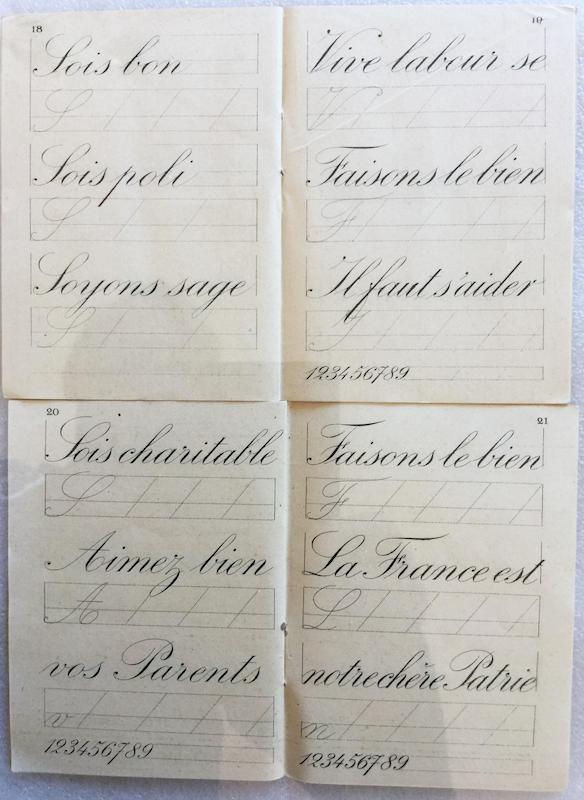 18
Sois bon
S
Sois poli
S
Soyons sage
S
19
Vive labour se
V
Faisons le bien
F
Il faut s'aider
I
123456789
20
Sois charitable
S
Aimez bien
A
vos Parents
v
123456789
21
Faisons le bien
F
La France est
L
notre chère Patrie
n
123456789